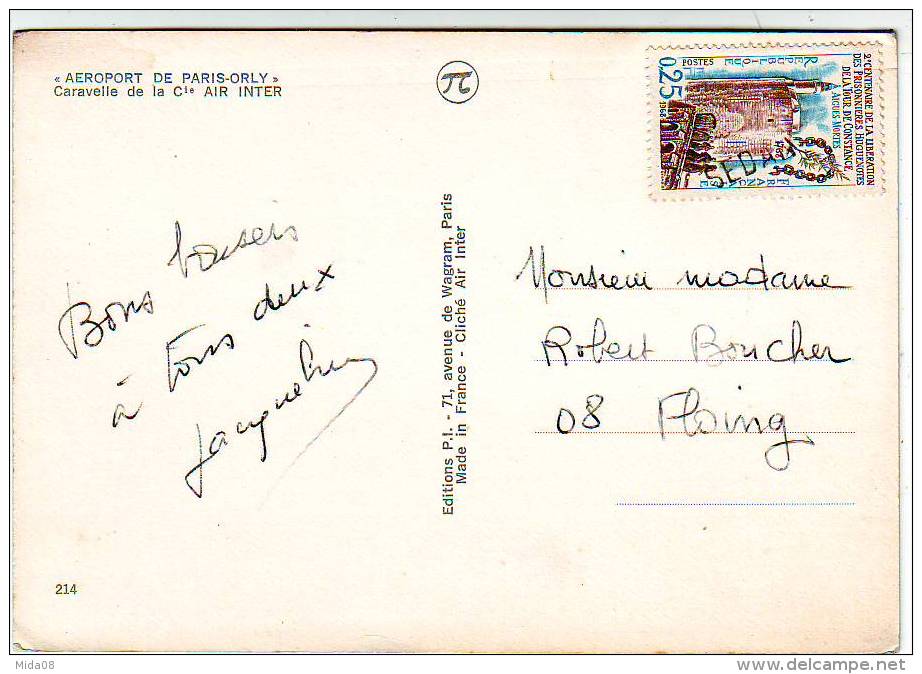 « AEROPORT DE PARIS-ORLY »
Caravelle de la Cie AIR INTER
π
Bons baisers
à tous deux
Jacqueline
214
Editions P.I. - 71, avenue de Wagram, Paris
Made in France - Cliché Air Inter
2e CENTENAIRE DE LA LIBERATION
DES PRISONNIERES HUGUENOTES
DE LA TOUR DE CONSTANCE
A AIGUES-MORTES
REPUBLIQUE
FRANCAISE
POSTES
0,25
1968
1768
SEDAN
Monsieur madame
Robert Boucher
08 Floing
Mida08
www.delcampe.net